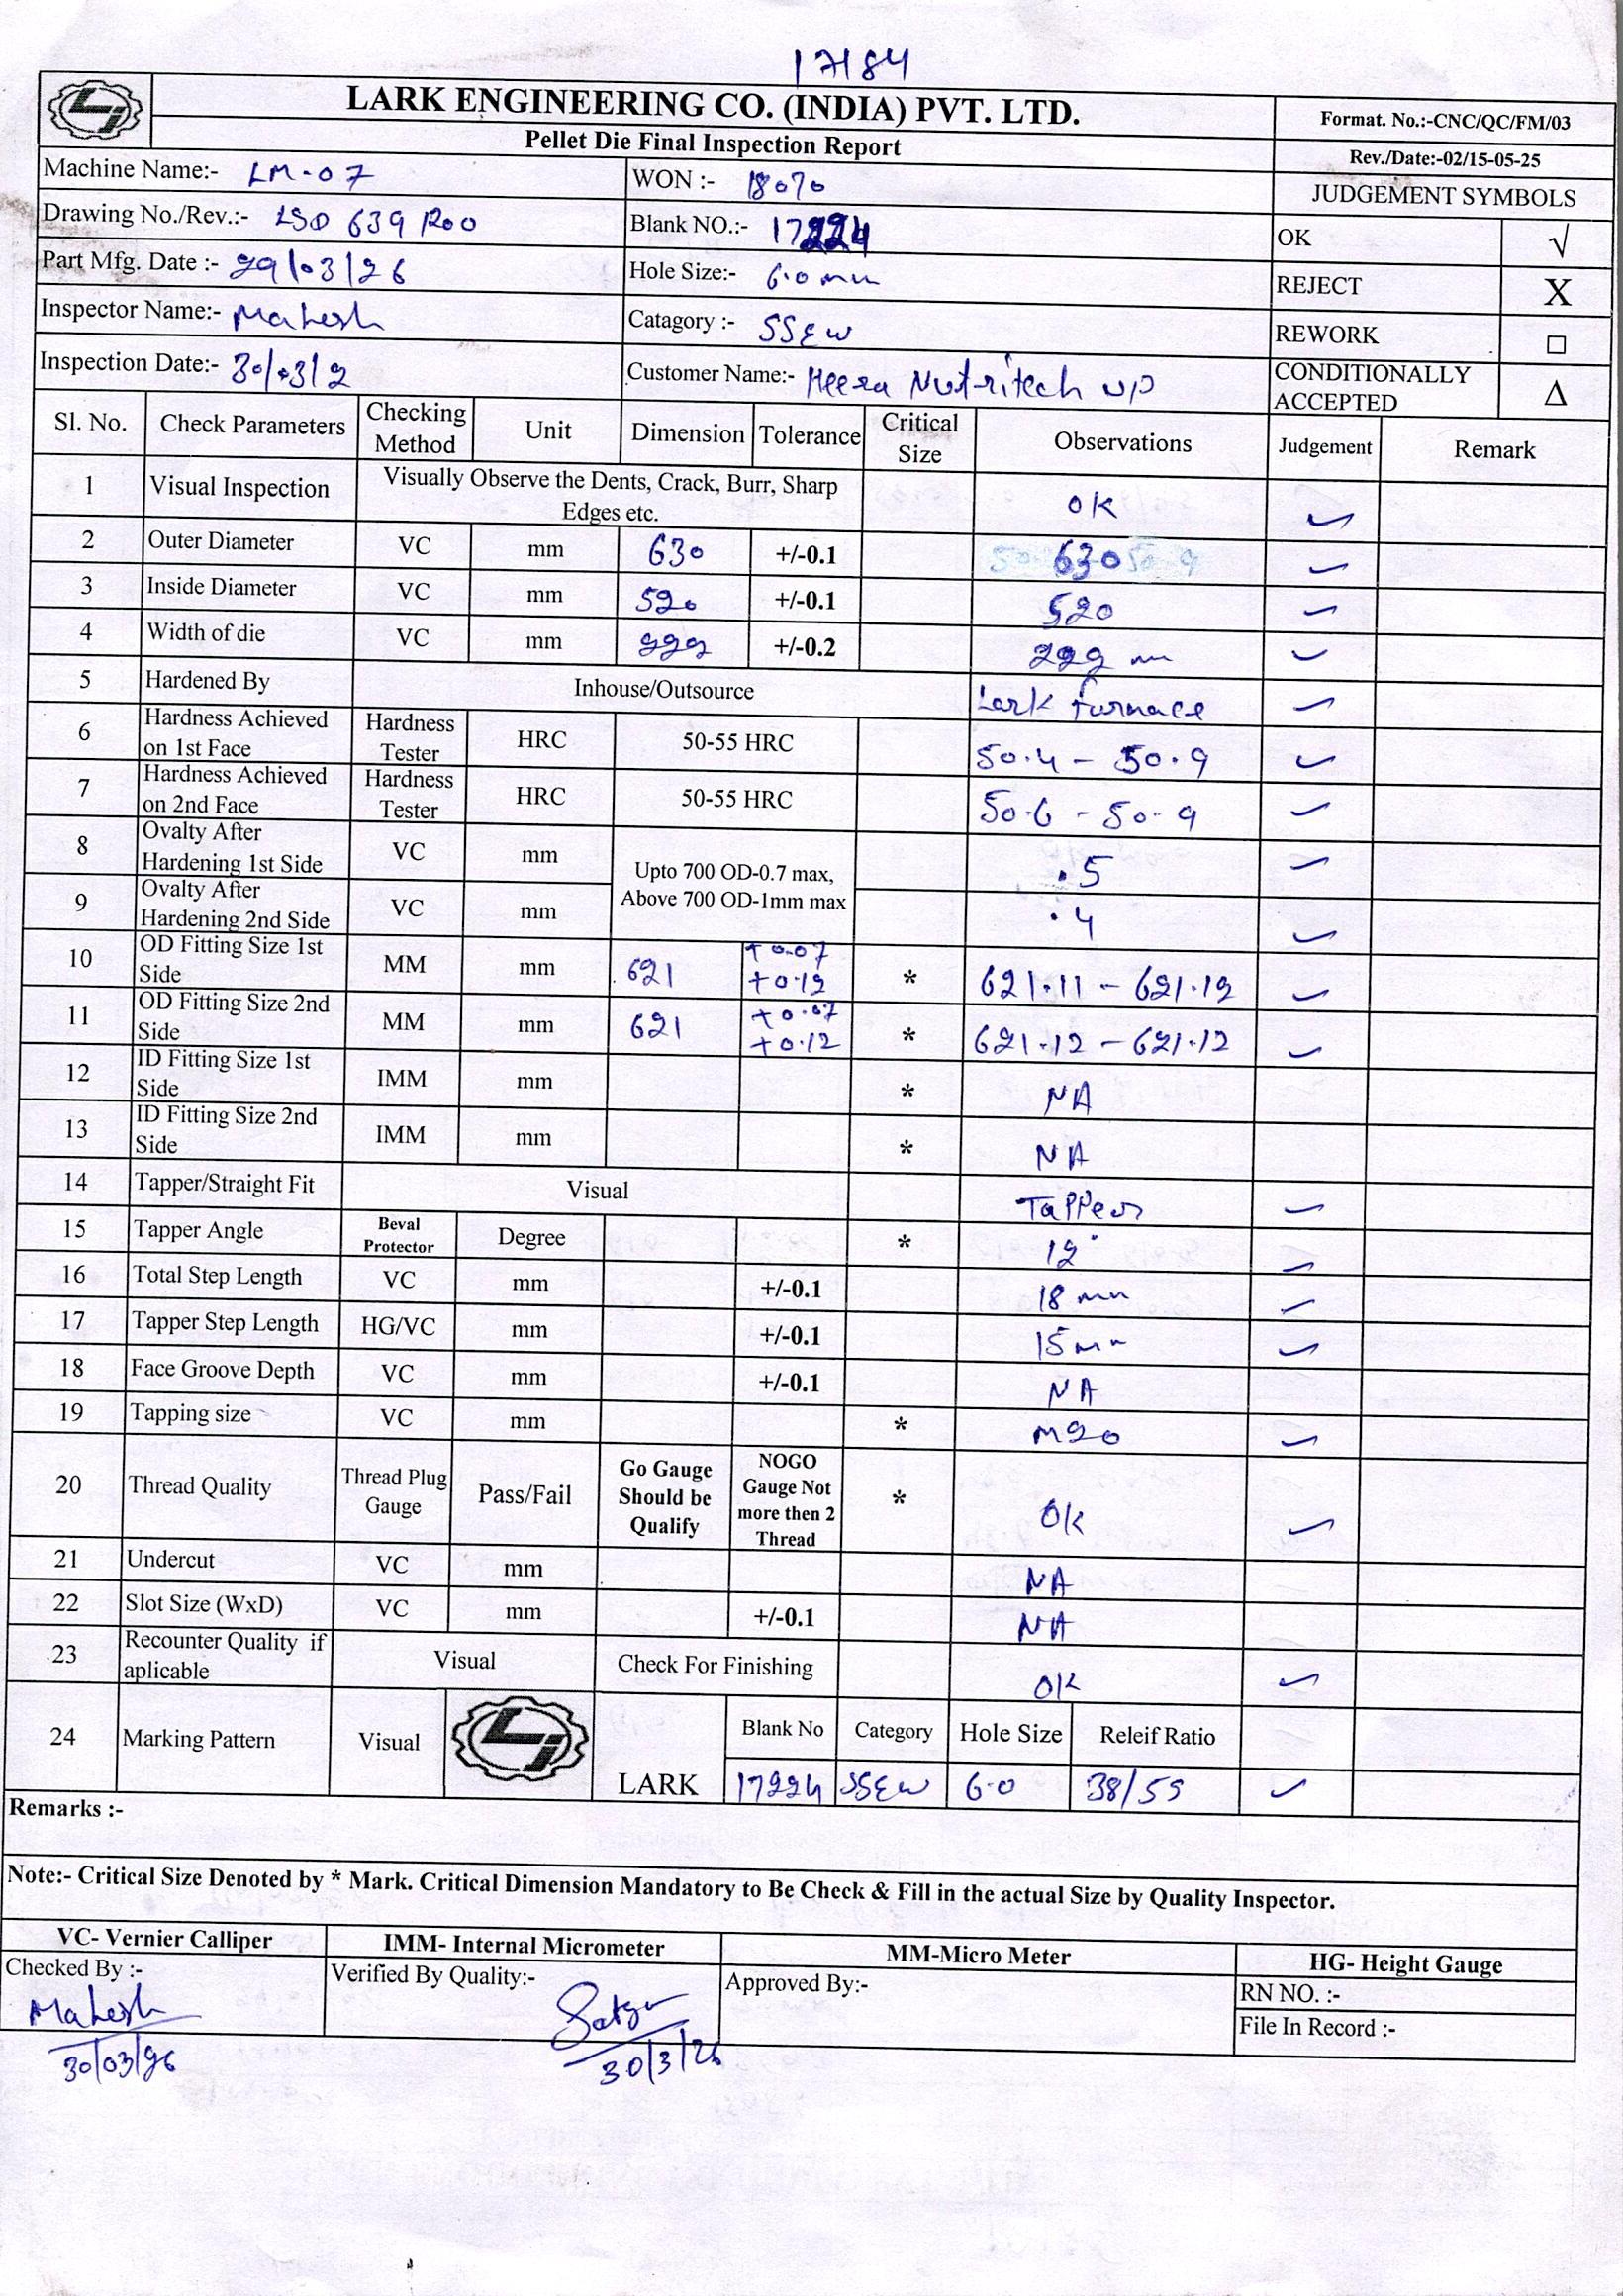 17184
LARK ENGINEERING CO. (INDIA) PVT. LTD.
Pellet Die Final Inspection Report
Format. No.:-CNC/QC/FM/03
Rev./Date:-02/15-05-25
Machine Name:- LM-07
WON :- 18070
JUDGEMENT SYMBOLS
Drawing No./Rev.:- LSD 639 R00
Blank NO.:- 17224
OK √
Part Mfg. Date :- 29/03/26
Hole Size:- 6.0 mm
REJECT X
Inspector Name:- Mahesh
Catagory :- SSEW
REWORK □
Inspection Date:- 30/03/2
Customer Name:- Heera Nutritech UP
CONDITIONALLY ACCEPTED Δ
Sl. No. Check Parameters Checking Method Unit Dimension Tolerance Critical Size Observations Judgement Remark
1 Visual Inspection Visually Observe the Dents, Crack, Burr, Sharp Edges etc. OK ✓
2 Outer Diameter VC mm 630 +/-0.1 630 ✓
3 Inside Diameter VC mm 520 +/-0.1 520 ✓
4 Width of die VC mm 222 +/-0.2 222 mm ✓
5 Hardened By Inhouse/Outsource Lark furnace ✓
6 Hardness Achieved on 1st Face Hardness Tester HRC 50-55 HRC 50.4 - 50.9 ✓
7 Hardness Achieved on 2nd Face Hardness Tester HRC 50-55 HRC 50.6 - 50.9 ✓
8 Ovalty After Hardening 1st Side VC mm Upto 700 OD-0.7 max, Above 700 OD-1mm max .5 ✓
9 Ovalty After Hardening 2nd Side VC mm .4 ✓
10 OD Fitting Size 1st Side MM mm 621 +0.07 +0.12 * 621.11 - 621.12 ✓
11 OD Fitting Size 2nd Side MM mm 621 +0.07 +0.12 * 621.12 - 621.12 ✓
12 ID Fitting Size 1st Side IMM mm * NA
13 ID Fitting Size 2nd Side IMM mm * NA
14 Tapper/Straight Fit Visual Tapper ✓
15 Tapper Angle Beval Protector Degree * 12° ✓
16 Total Step Length VC mm +/-0.1 18 mm ✓
17 Tapper Step Length HG/VC mm +/-0.1 15 mm ✓
18 Face Groove Depth VC mm +/-0.1 NA
19 Tapping size VC mm * M20 ✓
20 Thread Quality Thread Plug Gauge Pass/Fail Go Gauge Should be Qualify NOGO Gauge Not more then 2 Thread * OK ✓
21 Undercut VC mm NA
22 Slot Size (WxD) VC mm +/-0.1 NA
23 Recounter Quality if aplicable Visual Check For Finishing OK ✓
24 Marking Pattern Visual LARK Blank No Category Hole Size Releif Ratio
17224 SSEW 6.0 38/55 ✓
Remarks :-
Note:- Critical Size Denoted by * Mark. Critical Dimension Mandatory to Be Check & Fill in the actual Size by Quality Inspector.
VC- Vernier Calliper IMM- Internal Micrometer MM-Micro Meter HG- Height Gauge
Checked By :- Verified By Quality:- Approved By:- RN NO. :-
Mahesh File In Record :-
30/03/26 30/3/26